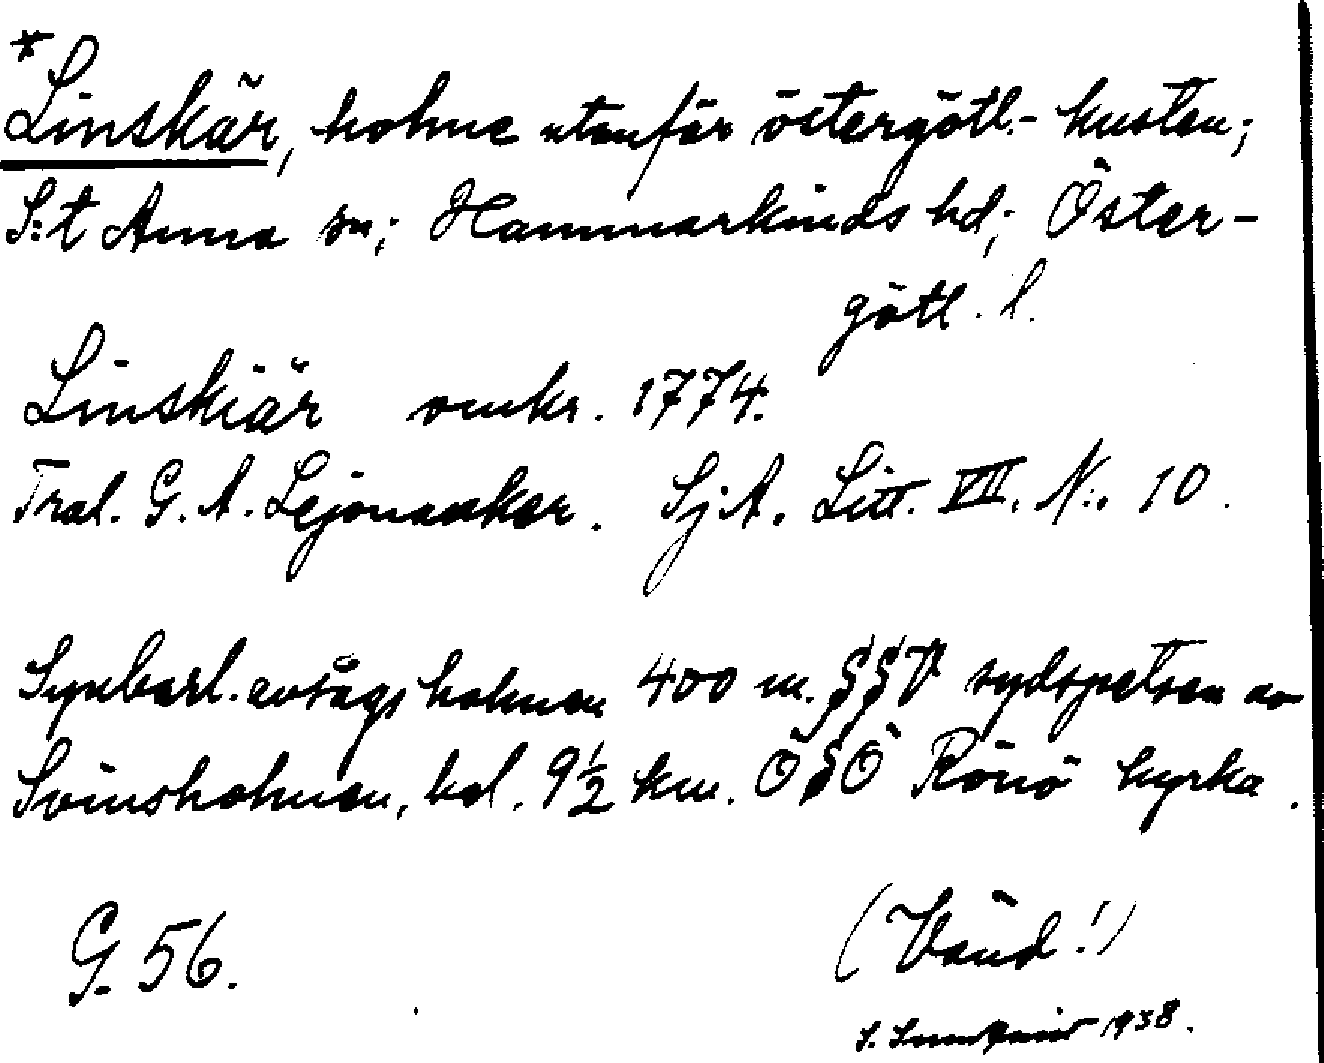 *
Linskär, holme utanför östergötl.- kusten;
S:t Anna sn; Hammarkinds hd; Öster-
götl. l.
Linskiär omkr. 1774.
Tral. G. A. Lejonanker. SjA. Litt. VII. N:. 10.
Synbarl. avsågs holmen 400 m. SSV sydspetsen av
Svinsholmen, bel. 9½ km. ÖSÖ Rönö kyrka.
G. 56.
(Vänd!)
S. 1938.